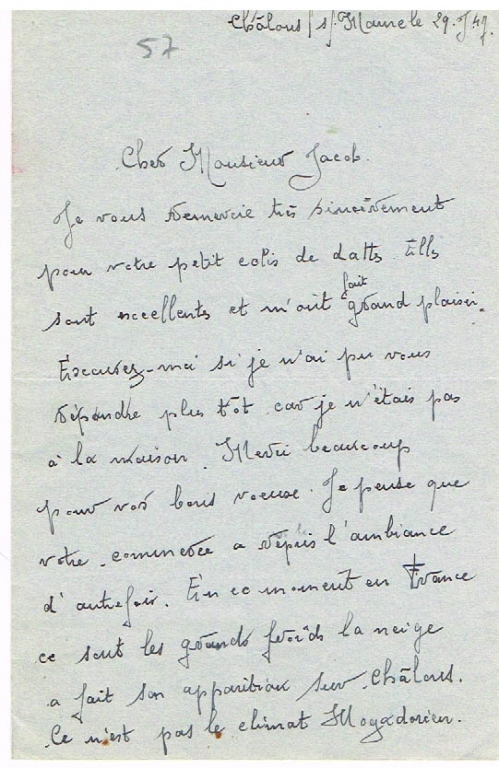 Châlons s/ Marne le 29. J. 47.
57
Cher Monsieur Jacob.
Je vous remercie très sincèrement
pour votre petit colis de dattes. Elles
sont excellentes et m'ont fait grand plaisir.
Excusez-moi si je n'ai pu vous
répondre plus tôt car je n'étais pas
à la maison. Merci beaucoup
pour vos bons voeux. Je pense que
votre commerce a repris l'ambiance
d'autrefois. En ce moment en France
ce sont les grands froids la neige
a fait son apparition sur Châlons.
Ce n'est pas le climat Mogadorien.